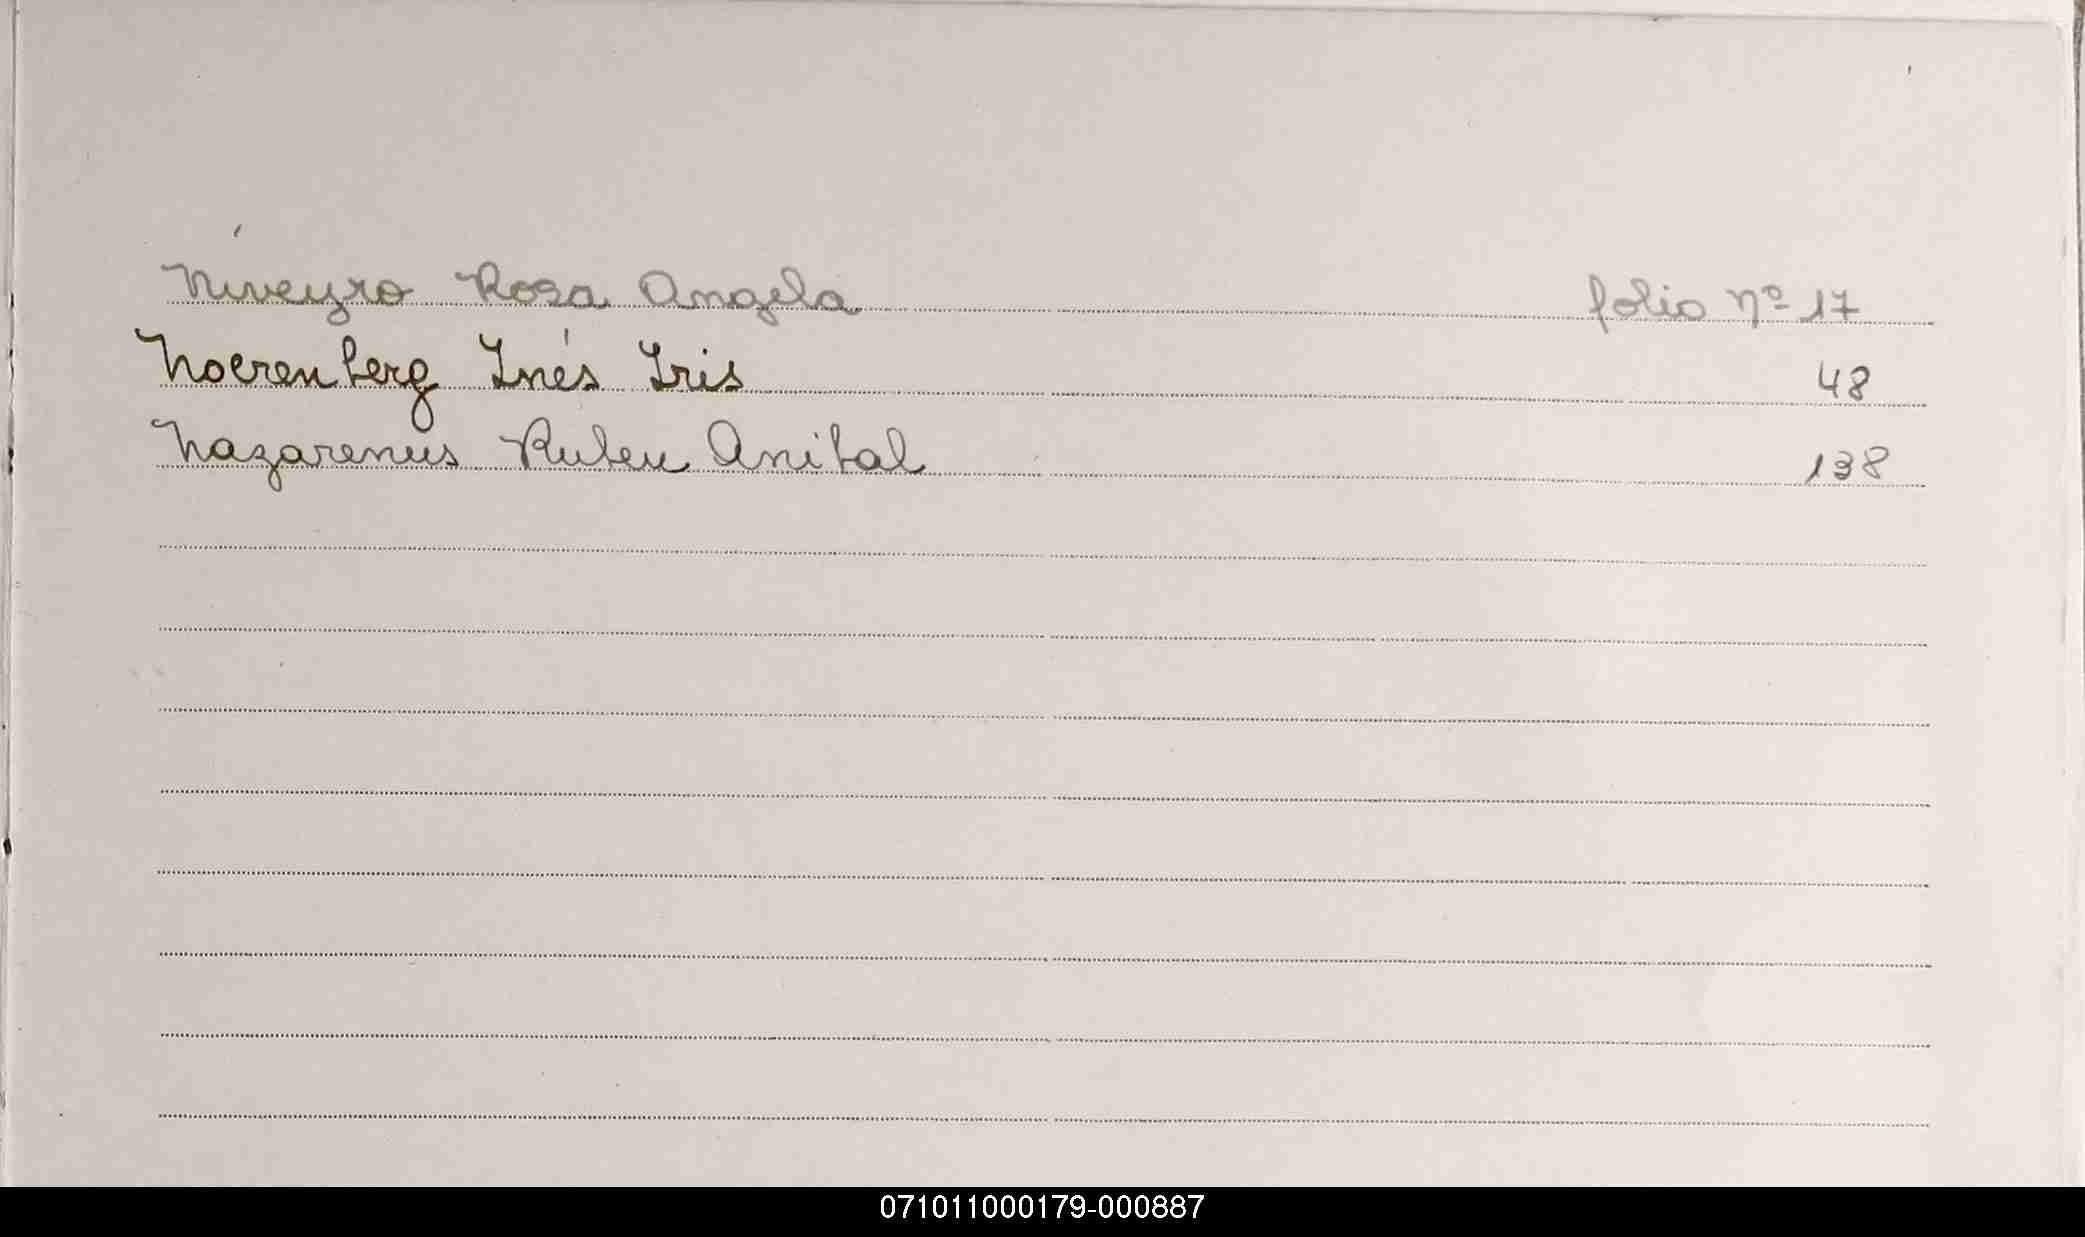 Niveyro Rosa Angela folio nº 17
Noerenberg Inés Iris 48
Nazarenus Ruben Anibal 138
071011000179-000887